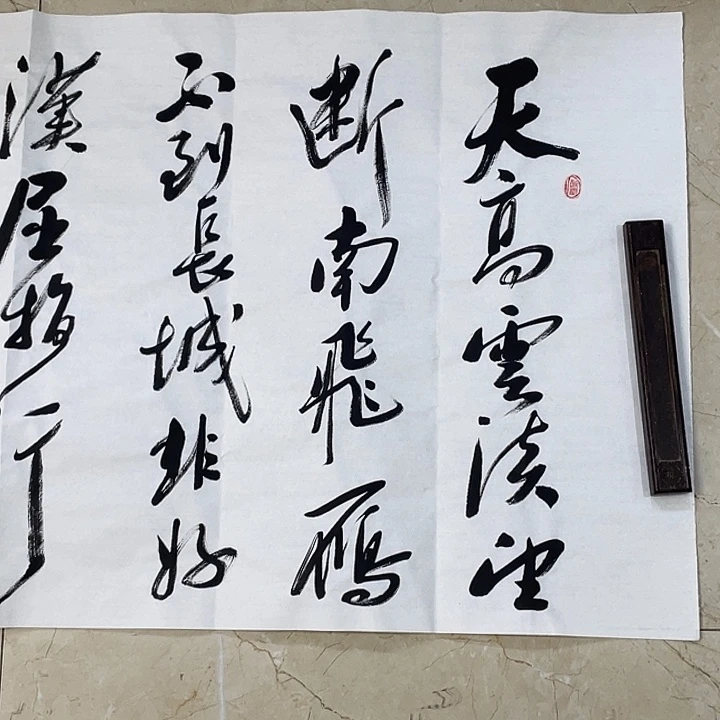 天高雲淡望
斷南飛雁
不到長城非好
漢屈指行